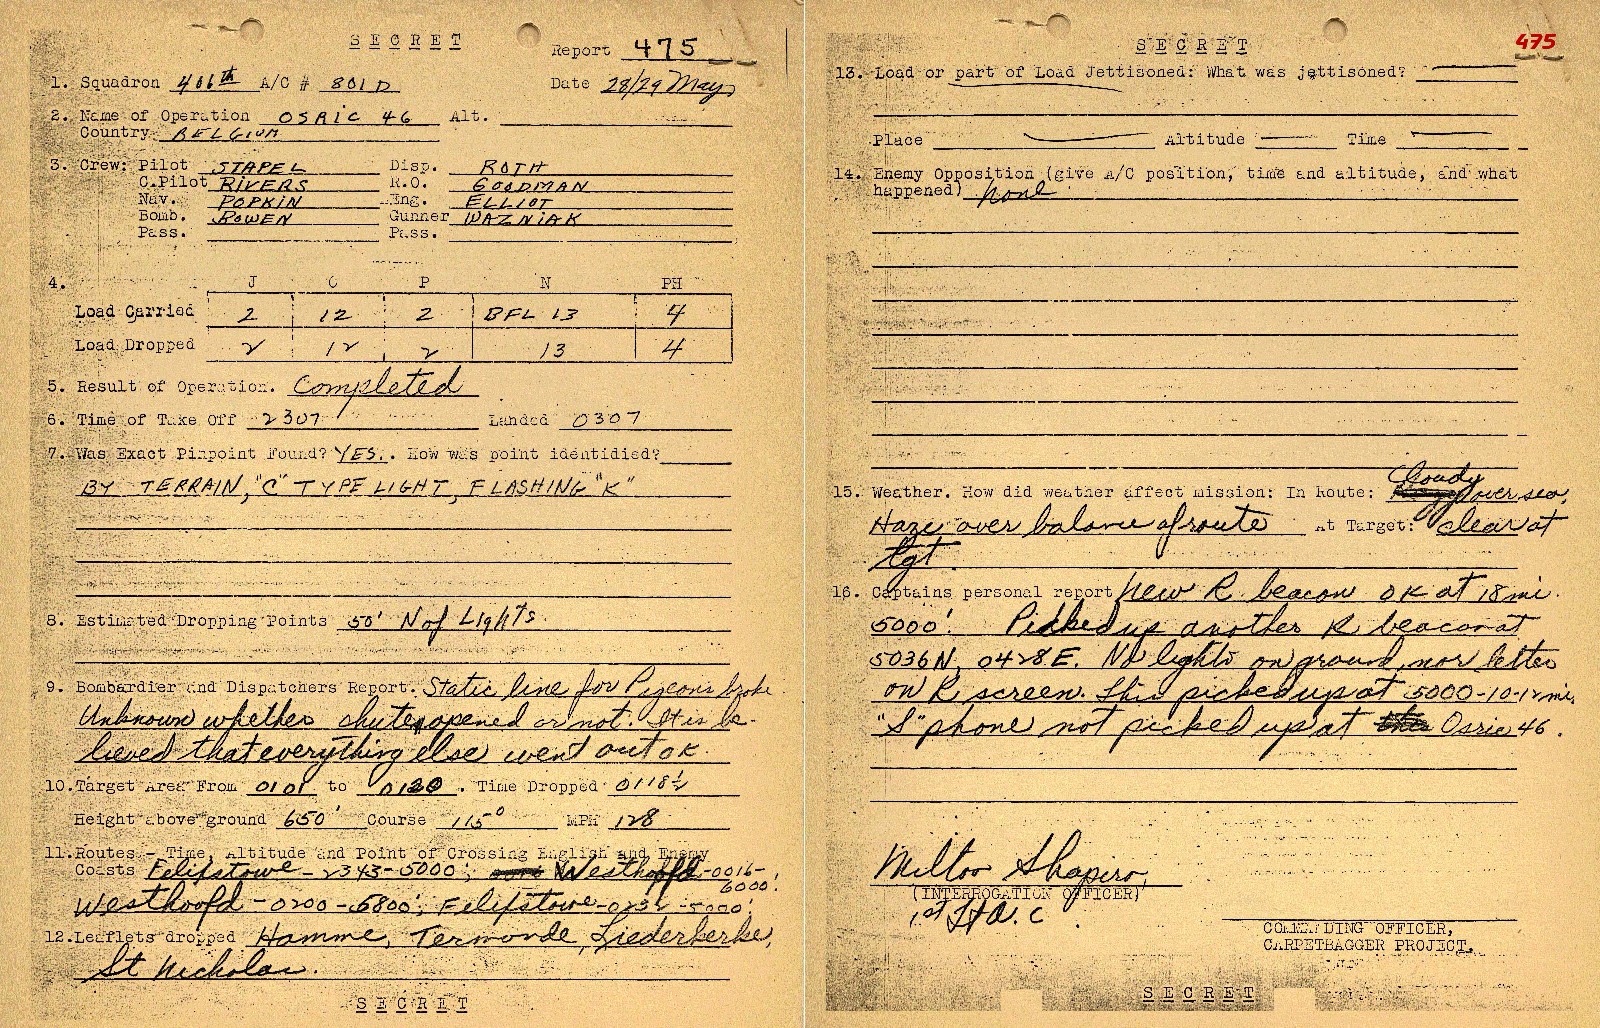 SECRET
Report 475
1. Squadron 406th A/C # 801 D Date 28/29 May
2. Name of Operation OSRIC 46 Alt.
Country BELGIUM
3. Crew: Pilot STAPEL Disp. ROTH
C.Pilot RIVERS R.O. GOODMAN
Nav. POPKIN Eng. ELLIOT
Bomb. BOWEN Gunner WAZNIAK
Pass. Pass.
4. J C P N PH
Load Carried 2 12 2 BFL 13 4
Load Dropped 2 12 2 13 4
5. Result of Operation. Completed
6. Time of Take Off 2307 Landed 0307
7. Was Exact Pinpoint Found? YES. How was point identidied?
BY TERRAIN, "C" TYPE LIGHT, FLASHING "K"
8. Estimated Dropping Points 50' N of Lights.
9. Bombardier and Dispatchers Report. Static line for Pigeons broke
Unknown whether chutes opened or not. It is be-
lieved that everything else went out ok.
10. Target Area From 0101 to 0120. Time Dropped 0118½
Height above ground 650' Course 115° MPH 128
11. Routes - Time, Altitude and Point of Crossing English and Enemy
Coasts Felipstowe - 2343-5000'; Westhoofd -0016-
6000'.
Westhoofd - 0200 - 6800'; Felipstowe - 5000'
12. Leaflets dropped Hamme, Termonde, Liederkerke,
St Nicholas.
SECRET
SECRET
475
13. Load or part of Load Jettisoned: What was jettisoned?
Place Altitude Time
14. Enemy Opposition (give A/C position, time and altitude, and what
happened) None
15. Weather. How did weather affect mission: In Route: Cloudy over sea,
Haze over balance of route At Target: Clear at
tgt.
16. Captains personal report New R beacon OK at 18 mi.
5000'. Picked up another R beacon at
5036N, 0428E. No lights on ground, nor letter
on R screen. This picked up at 5000-10-12 mi.
"S" phone not picked up at Osric 46.
Milton Shapiro
(INTERROGATION OFFICER)
1st Lt A. C
COMMANDING OFFICER,
CARPETBAGGER PROJECT.
SECRET